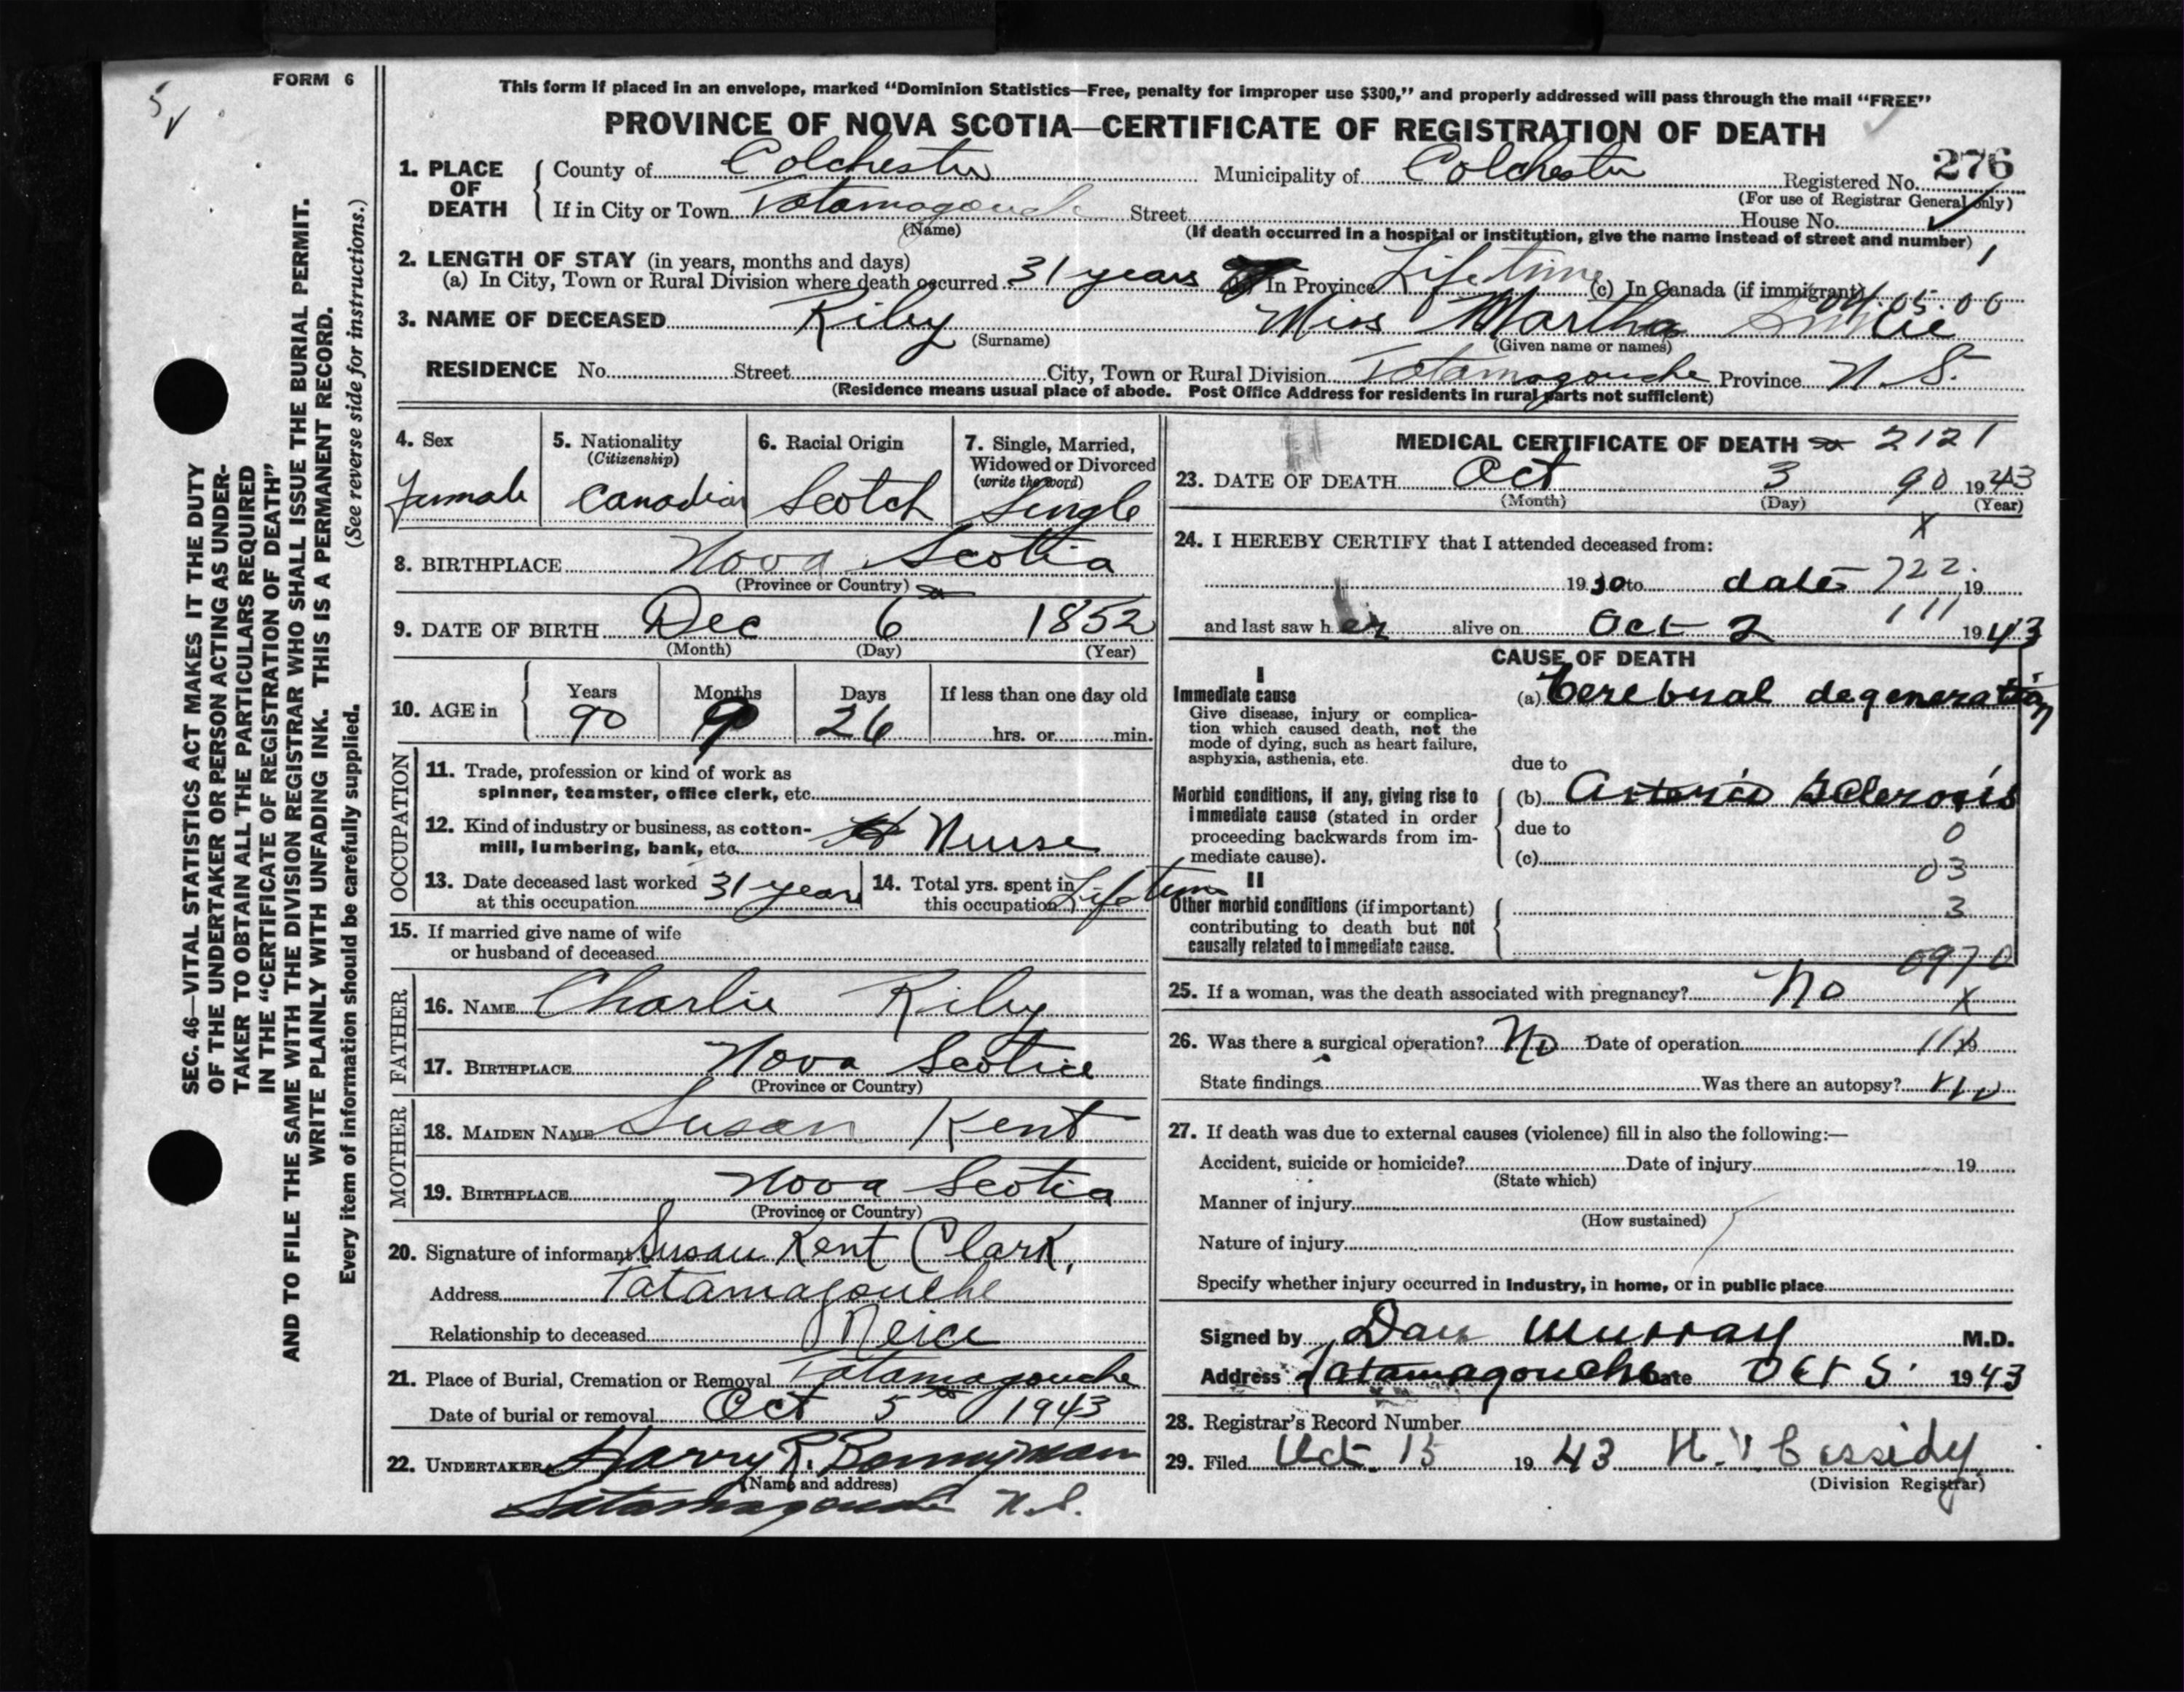 5
FORM 6
This form if placed in an envelope, marked "Dominion Statistics—Free, penalty for improper use $300," and properly addressed will pass through the mail "FREE"
PROVINCE OF NOVA SCOTIA—CERTIFICATE OF REGISTRATION OF DEATH
276
1. PLACE OF DEATH County of Colchester Municipality of Colchester Registered No.
(For use of Registrar General only)
If in City or Town Tatamagouche Street House No.
(Name) (If death occurred in a hospital or institution, give the name instead of street and number)
2. LENGTH OF STAY (in years, months and days)
(a) In City, Town or Rural Division where death occurred 31 years In Province Lifetime (c) In Canada (if immigrant)
04.05.00
3. NAME OF DECEASED Riley Miss Martha
(Surname) (Given name or names)
RESIDENCE No. Street City, Town or Rural Division Tatamagouche Province N.S.
(Residence means usual place of abode. Post Office Address for residents in rural parts not sufficient)
4. Sex
Female
5. Nationality
(Citizenship)
Canadian
6. Racial Origin
Scotch
7. Single, Married,
Widowed or Divorced
(write the word)
Single
8. BIRTHPLACE Nova Scotia
(Province or Country)
9. DATE OF BIRTH Dec 6 1852
(Month) (Day) (Year)
10. AGE in Years Months Days If less than one day old
90 9 26 hrs. or min.
OCCUPATION
11. Trade, profession or kind of work as
spinner, teamster, office clerk, etc.
12. Kind of industry or business, as cotton-
mill, lumbering, bank, etc. Nurse
13. Date deceased last worked
at this occupation 31 years
14. Total yrs. spent in
this occupation Lifetime
15. If married give name of wife
or husband of deceased
FATHER
16. NAME Charlie Riley
17. BIRTHPLACE Nova Scotia
(Province or Country)
MOTHER
18. MAIDEN NAME Susan Kent
19. BIRTHPLACE Nova Scotia
(Province or Country)
20. Signature of informant Susan Kent Clark,
Address Tatamagouche
Relationship to deceased Neice
21. Place of Burial, Cremation or Removal Tatamagouche
Date of burial or removal Oct 5th 1943
22. UNDERTAKER Harry R. Bonnyman
(Name and address)
Tatamagouche N.S.
MEDICAL CERTIFICATE OF DEATH 2121
23. DATE OF DEATH Oct 3 90 1943
(Month) (Day) (Year)
X
24. I HEREBY CERTIFY that I attended deceased from:
1930 to date 722 19
111
and last saw her alive on Oct 2 1943
CAUSE OF DEATH
I
Immediate cause (a) Cerebral degeneration
Give disease, injury or complica-
tion which caused death, not the
mode of dying, such as heart failure,
asphyxia, asthenia, etc.
due to
Morbid conditions, if any, giving rise to
immediate cause (stated in order
proceeding backwards from im-
mediate cause).
(b) Arterio Sclerosis
due to 0
(c) 03
II
Other morbid conditions (if important)
contributing to death but not
causally related to immediate cause.
3
0970
25. If a woman, was the death associated with pregnancy? No
X
26. Was there a surgical operation? No Date of operation 19
State findings Was there an autopsy? No
27. If death was due to external causes (violence) fill in also the following:—
Accident, suicide or homicide? Date of injury 19
(State which)
Manner of injury
(How sustained)
Nature of injury
Specify whether injury occurred in Industry, in home, or in public place
Signed by Dan Murray M.D.
Address Tatamagouche Date Oct 5 1943
28. Registrar's Record Number
29. Filed Oct. 15 1943 Cassidy
(Division Registrar)
SEC. 46—VITAL STATISTICS ACT MAKES IT THE DUTY
OF THE UNDERTAKER OR PERSON ACTING AS UNDER-
TAKER TO OBTAIN ALL THE PARTICULARS REQUIRED
IN THE "CERTIFICATE OF REGISTRATION OF DEATH"
AND TO FILE THE SAME WITH THE DIVISION REGISTRAR WHO SHALL ISSUE THE BURIAL PERMIT.
WRITE PLAINLY WITH UNFADING INK. THIS IS A PERMANENT RECORD.
Every item of information should be carefully supplied. (See reverse side for instructions.)